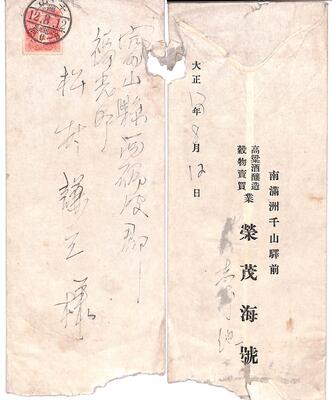 12.8.12
富山縣西礪波郡
福光町
松村謙三様
南滿洲千山驛前
高粱酒釀造
穀物賣買業
榮茂海號
大正12年8月12日